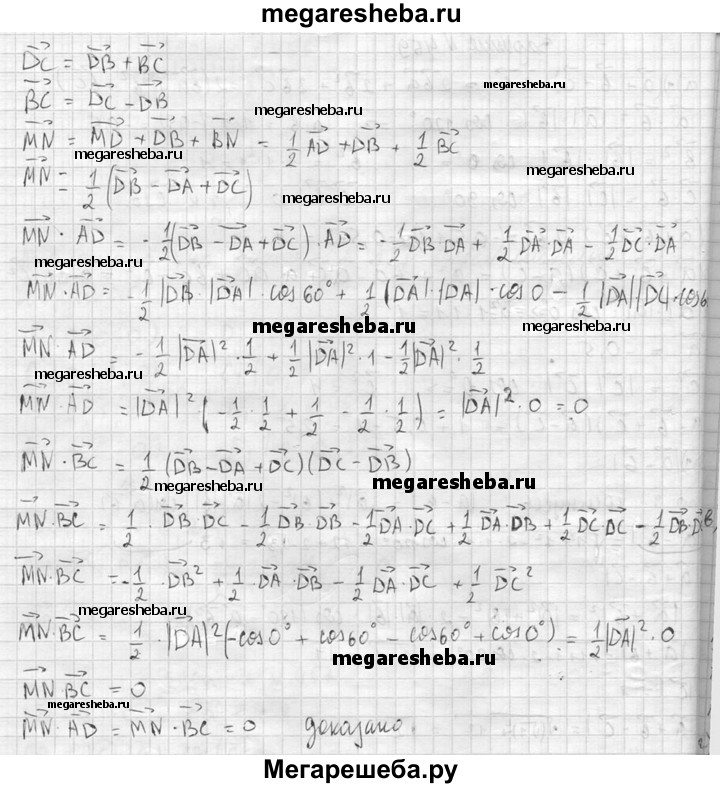 megaresheba.ru
DC = DB + BC
BC = DC - DB
megaresheba.ru
megaresheba.ru
MN = MD + DB + BN = 1/2 AD + DB + 1/2 BC
megaresheba.ru
MN = 1/2 (DB - DA + DC)
megaresheba.ru
MN · AD = - 1/2 (DB - DA + DC) · AD = - 1/2 DB · DA + 1/2 DA · DA - 1/2 DC · DA
megaresheba.ru
MN · AD = - 1/2 |DB| · |DA| · cos 60° + 1/2 |DA| · |DA| · cos 0 - 1/2 |DA| |DC| · cos 6
megaresheba.ru
megaresheba.ru
MN · AD = - 1/2 |DA|² · 1/2 + 1/2 |DA|² · 1 - 1/2 |DA|² · 1/2
megaresheba.ru
MN · AD = |DA|² (- 1/2 · 1/2 + 1/2 - 1/2 · 1/2) = |DA|² · 0 = 0
MN · BC = 1/2 (DB - DA + DC)(DC - DB)
megaresheba.ru
megaresheba.ru
MN · BC = 1/2 · DB · DC - 1/2 DB · DB - 1/2 DA · DC + 1/2 DA · DB + 1/2 DC · DC - 1/2 DB · DC
MN · BC = - 1/2 · DB² + 1/2 · DA · DB - 1/2 DA · DC + 1/2 DC²
megaresheba.ru
MN · BC = 1/2 · |DA|² (-cos 0° + cos 60° - cos 60° + cos 0°) = 1/2 |DA|² · 0
megaresheba.ru
MN · BC = 0
megaresheba.ru
MN · AD = MN · BC = 0 доказано
Мегарешеба.ру